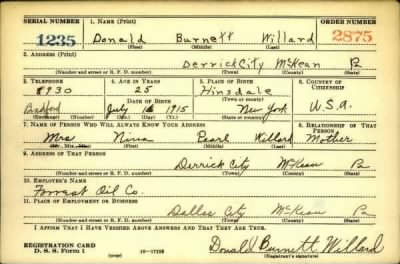 SERIAL NUMBER 1. NAME (Print) ORDER NUMBER
1235 Donald Burnett Willard 2875
(First) (Middle) (Last)
2. ADDRESS (Print)
Derrick City McKean Pa
(Number and street or R. F. D. number) (Town) (County) (State)
3. TELEPHONE 4. AGE IN YEARS 5. PLACE OF BIRTH 6. COUNTRY OF CITIZENSHIP
8930 25 Hinsdale
(Town or county)
DATE OF BIRTH U.S.A.
Bradford July 1915 New York
(Exchange) (Mo.) (Day) (Yr.) (State or country)
7. NAME OF PERSON WHO WILL ALWAYS KNOW YOUR ADDRESS 8. RELATIONSHIP OF THAT PERSON
Mrs Nina Pearl Willard Mother
(Mr., Mrs., Miss) (First) (Middle) (Last)
9. ADDRESS OF THAT PERSON
Derrick City McKean Pa
(Number and street or R. F. D. number) (Town) (County) (State)
10. EMPLOYER'S NAME
Forrest Oil Co.
11. PLACE OF EMPLOYMENT OR BUSINESS
Dallas City McKean Pa
(Number and street or R. F. D. number) (Town) (County) (State)
I AFFIRM THAT I HAVE VERIFIED ABOVE ANSWERS AND THAT THEY ARE TRUE.
REGISTRATION CARD
D. S. S. Form 1 (over) Donald Burnett Willard
(Registrant's signature)